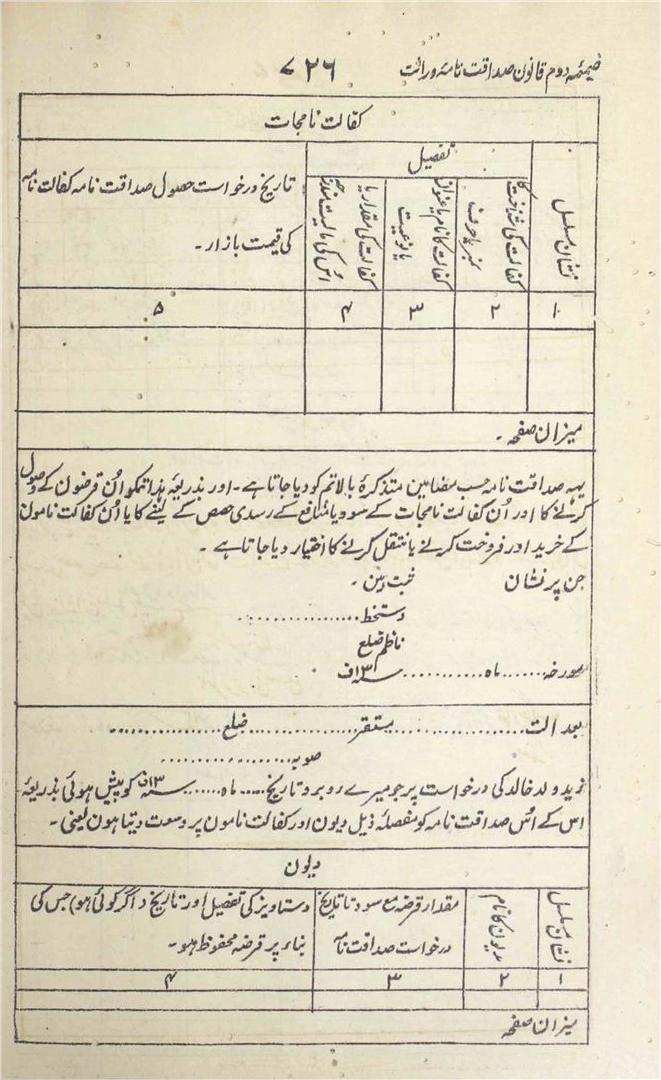 ضمیمہ دوم قانون صداقت نامۂ وراثت ۷۲۶
کفالت نامجات
نشان سلسل
تفصیل
تاریخ درخواست حصول صداقت نامہ کفالت نامہ
کی قیمت بازار۔
کفالت کی شناخت کا
نمبر یا حرف
کفالت کا نام یا عنوان
یا نوعیت
کفالت کی مقدار یا
اُس کی مالیت مندرجہ
۱ ۲ ۳ ۴ ۵
میزان صفحہ۔
یہہ صداقت نامہ حسب مضامین متذکرۂ بالا تم کو دیا جاتا ہے۔ اور بذریعۂ ہذا تمکو اُن قرضون کے وصول
کرنے کا اور اُن کفالت نامجات کے سود یا منافع کے رسدی حصص کے لینے کا یا اُن کفالت نامون
کے خرید اور فروخت کرنے یا منتقل کرنے کا اختیار دیا جاتا ہے۔
جن پر نشان ثبت ہین۔
دستخط................
ناظم ضلع
مورخہ.......ماہ............سنہ ۱۳ف
بعدالت....................مستقر..................ضلع................
صوبہ..................
زید ولد خالد کی درخواست پر جو میرے روبرو تاریخ.....ماہ......سنہ ۱۳ف کو پیش ہوئی بذریعۂ
اس کے اُس صداقت نامہ کو مفصلہ ذیل دیون اور کفالت نامون پر وسعت دیتا ہون یعنی۔
دیون
نشان سلسل
مدیون کا نام
مقدار قرضہ مع سود تا تاریخ
درخواست صداقت نامہ
دستاویز کی تفصیل اور تاریخ (اگر کوئی ہو) جس کی
بناء پر قرضہ محفوظ ہو۔
۱ ۲ ۳ ۴
میزان صفحہ